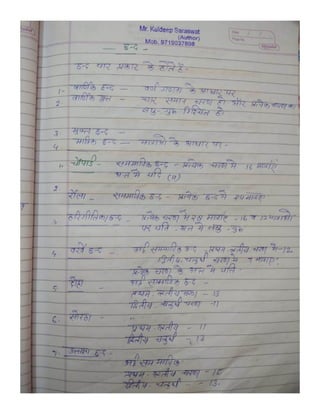 Mr. Kuldeep Saraswat
(Author)
Mob. 9719037898
— छन्द —
छन्द चार प्रकार के होते हैं-
1- वार्णिक छन्द — वर्ण गणना के आधार पर
2 वार्णिक वृत्त — चार समान चरण हो और प्रत्येक चरण का
लघु-गुरु निश्चित हो
3. मुक्त छन्द —
4 मात्रिक छन्द — मात्राओं के आधार पर-
चौपाई - सममात्रिक छन्द - प्रत्येक चरण में 16 मात्राएं
अन्त में यति
2
रोला - सममात्रिक छन्द - प्रत्येक छन्द में 24 मात्रा
3. हरिगीतिका छन्द - प्रत्येक चरण में 28 मात्राएं - 16 व 12 मात्राओं
पर यति - अन्त में लघु-गुरु
4. बरवै छन्द - अर्द्ध सममात्रिक छन्द प्रथम तृतीय चरण में-12
द्वितीय, चतुर्थ चरण में 7 मात्राएं
प्रत्येक चरण के अन्त में यति
5. दोहा - अर्द्ध सममात्रिक छन्द -
प्रथम, तृतीय चरण - 13
द्वितीय चतुर्थ चरण - 11
6. सोरठा - "
प्रथम - तृतीय - 11
द्वितीय चतुर्थ - 13
7. उल्लाला छन्द -
अर्द्ध सम मात्रिक
प्रथम - तृतीय चरण - 15
द्वितीय, चतुर्थ - 13.